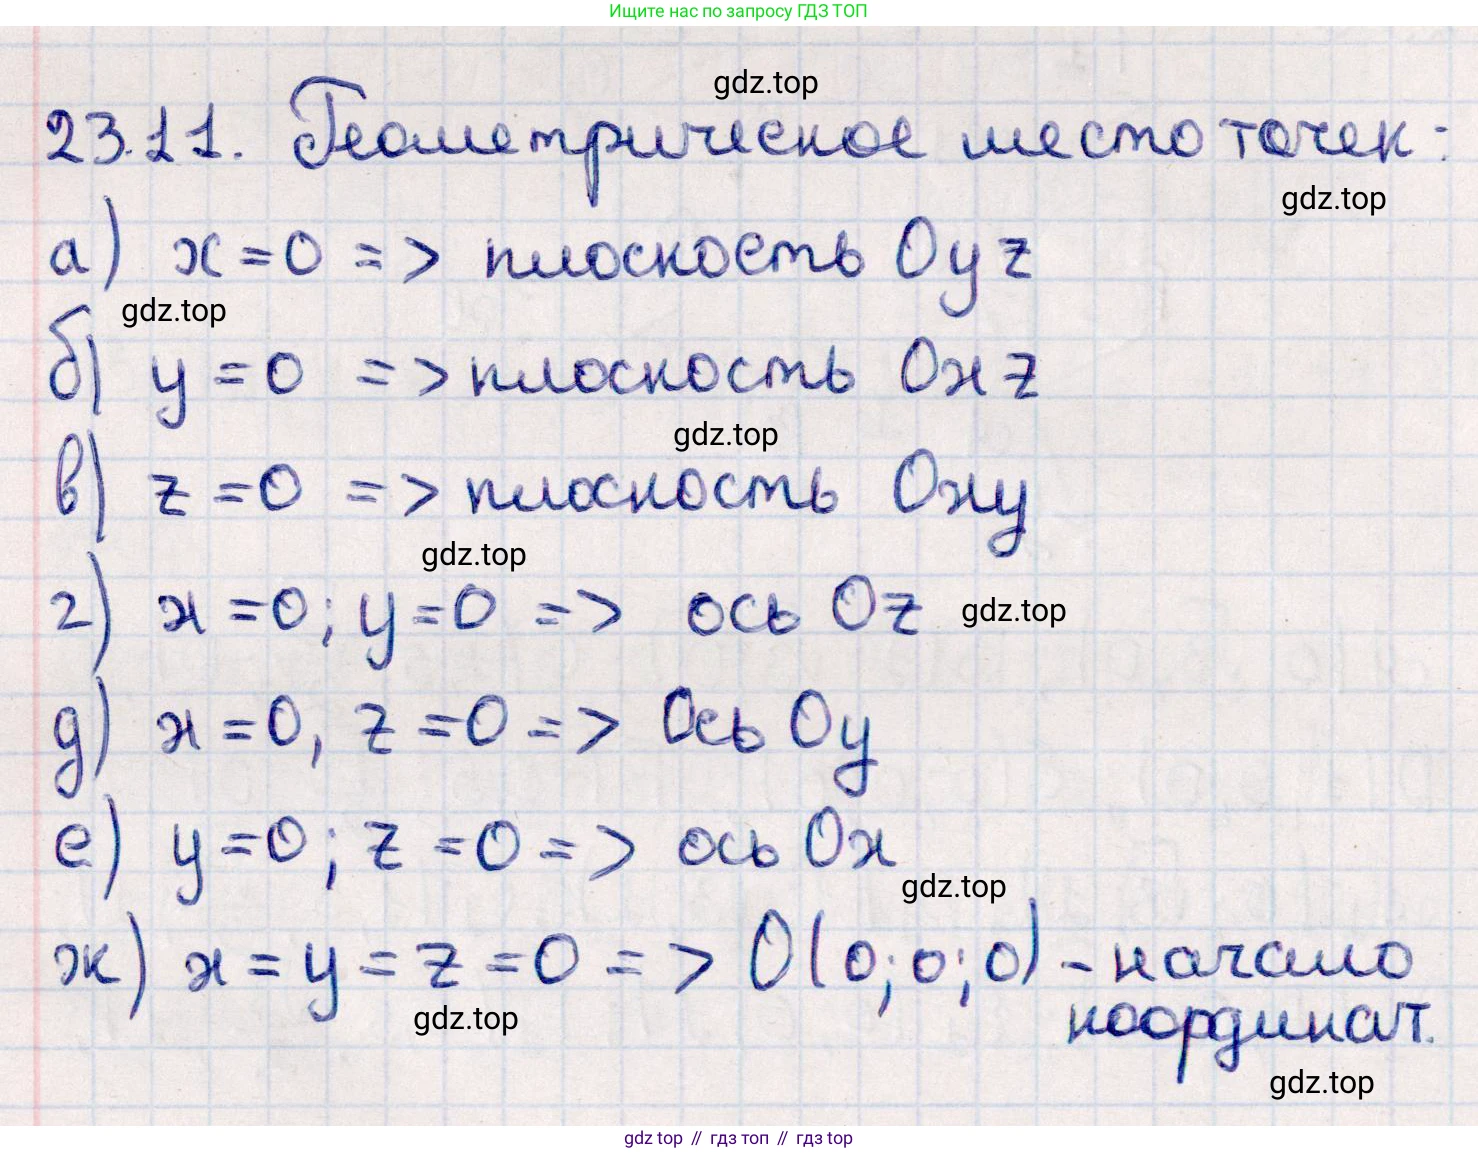 Ищите нас по запросу ГДЗ ТОП
gdz.top
23.11. Геометрическое место точек:
gdz.top
а) x=0 => плоскость Oyz
gdz.top
б) y=0 => плоскость Oxz
gdz.top
в) z=0 => плоскость Oxy
gdz.top
г) x=0; y=0 => ось Oz
gdz.top
д) x=0, z=0 => Ось Oy
е) y=0; z=0 => ось Ox
gdz.top
ж) x=y=z=0 => O(0;0;0) - начало
координат.
gdz.top
gdz.top
gdz top // гдз топ // гдз top